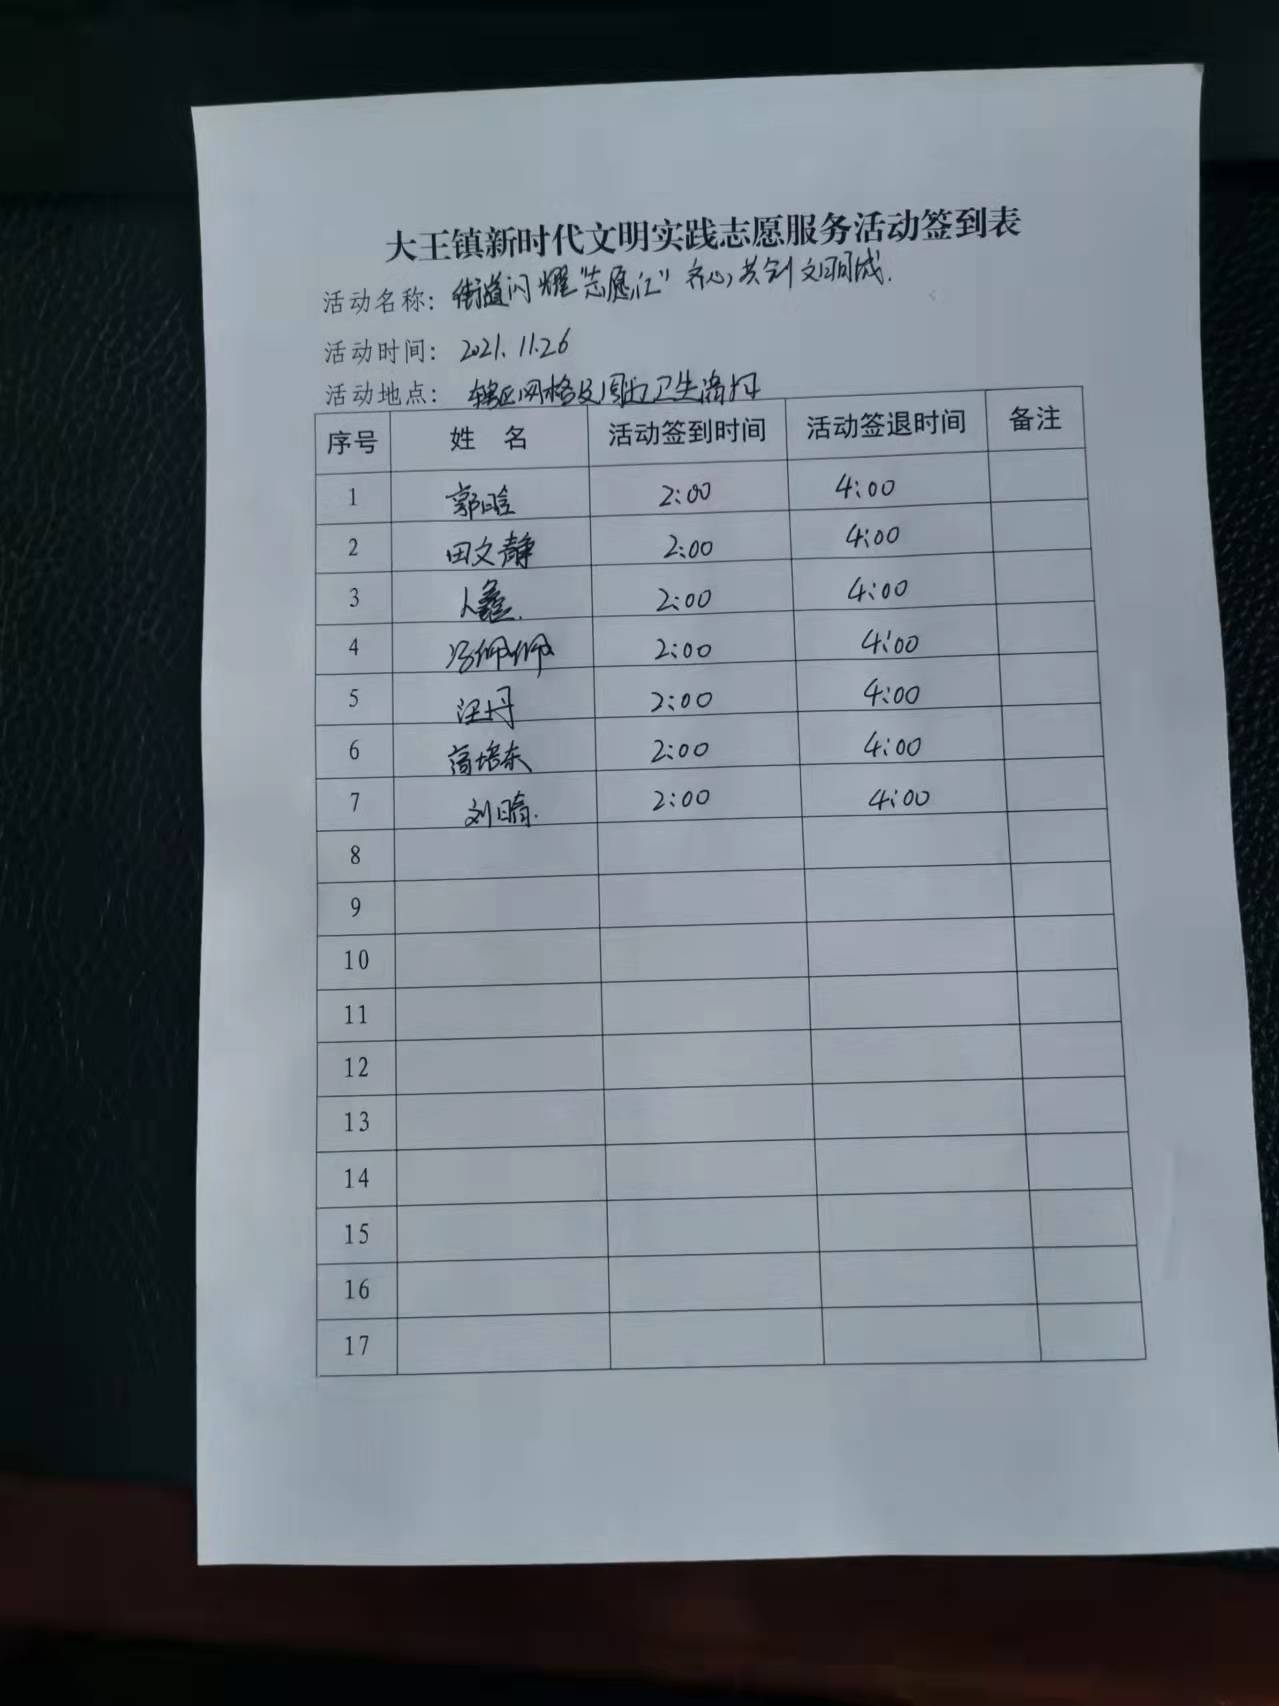 大王镇新时代文明实践志愿服务活动签到表
活动名称：街道闪耀"志愿红" 齐心共创文明城.
活动时间：2021.11.26
活动地点：辖区网格及周边卫生清扫
序号 姓 名 活动签到时间 活动签退时间 备注
1 郭晗 2:00 4:00
2 田文静 2:00 4:00
3 2:00 4:00
4 冯佩佩 2:00 4:00
5 汪丹 2:00 4:00
6 高培东 2:00 4:00
7 刘晴. 2:00 4:00
8
9
10
11
12
13
14
15
16
17